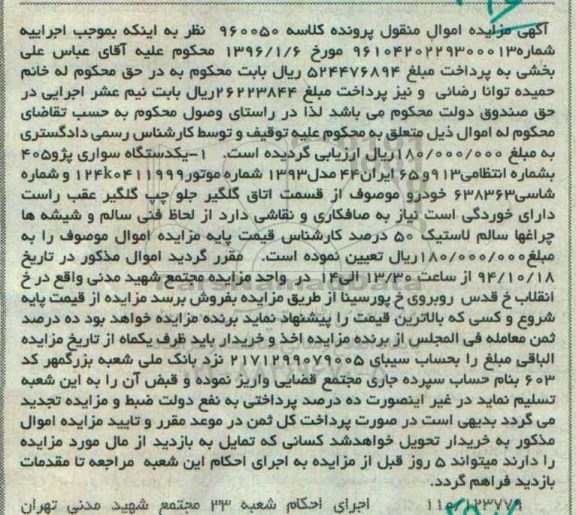 آگهی مزایده اموال منقول پرونده کلاسه ۹۶۰۰۵۰ نظر به اینکه بموجب اجراییه
شماره۹۶۱۰۴۲۰۲۲۹۳۰۰۰۱۳ مورخ ۱۳۹۶/۱/۶ محکوم علیه آقای عباس علی
بخشی به پرداخت مبلغ ۵۲۴۴۷۶۸۹۴ ریال بابت محکوم به در حق محکوم له خانم
حمیده توانا رضائی و نیز پرداخت مبلغ ۲۶۲۲۳۸۴۴ریال بابت نیم عشر اجرایی در
حق صندوق دولت محکوم می باشد لذا در راستای وصول محکوم به حسب تقاضای
محکوم له اموال ذیل متعلق به محکوم علیه توقیف و توسط کارشناس رسمی دادگستری
به مبلغ ۱۸۰/۰۰۰/۰۰۰ریال ارزیابی گردیده است. ۱-یکدستگاه سواری پژو۴۰۵
بشماره انتظامی۹۱۳و۶۵ ایران۴۴ مدل۱۳۹۳ شماره موتور۱۲۴k۰۴۱۱۹۹۹ و شماره
شاسی۶۳۸۳۶۳ خودرو موصوف از قسمت اتاق گلگیر جلو چپ گلگیر عقب راست
دارای خوردگی است نیاز به صافکاری و نقاشی دارد از لحاظ فنی سالم و شیشه ها
چراغها سالم لاستیک ۵۰ درصد کارشناس قیمت پایه مزایده اموال موصوف را به
مبلغ۱۸۰/۰۰۰/۰۰۰ریال تعیین نموده است. مقرر گردید اموال مذکور در تاریخ
۹۴/۱۰/۱۸ از ساعت ۱۳/۳۰ الی۱۴ در واحد مزایده مجتمع شهید مدنی واقع در خ
انقلاب خ قدس روبروی خ پورسینا از طریق مزایده بفروش برسد مزایده از قیمت پایه
شروع و کسی که بالاترین قیمت را پیشنهاد نماید برنده مزایده خواهد بود ده درصد
ثمن معامله فی المجلس از برنده مزایده اخذ و خریدار باید ظرف یکماه از تاریخ مزایده
الباقی مبلغ را بحساب سیبای ۲۱۷۱۲۹۹۰۷۹۰۰۵ نزد بانک ملی شعبه بزرگمهر کد
۶۰۳ بنام حساب سپرده جاری مجتمع قضایی واریز نموده و قبض آن را به این شعبه
تسلیم نماید در غیر اینصورت ده درصد پرداختی به نفع دولت ضبط و مزایده تجدید
می گردد بدیهی است در صورت پرداخت کل ثمن در موعد مقرر و تایید مزایده اموال
مذکور به خریدار تحویل خواهدشد کسانی که تمایل به بازدید از مال مورد مزایده
را دارند میتواند ۵ روز قبل از مزایده به اجرای احکام این شعبه مراجعه تا مقدمات
بازدید فراهم گردد.
اجرای احکام شعبه ۳۳ مجتمع شهید مدنی تهران